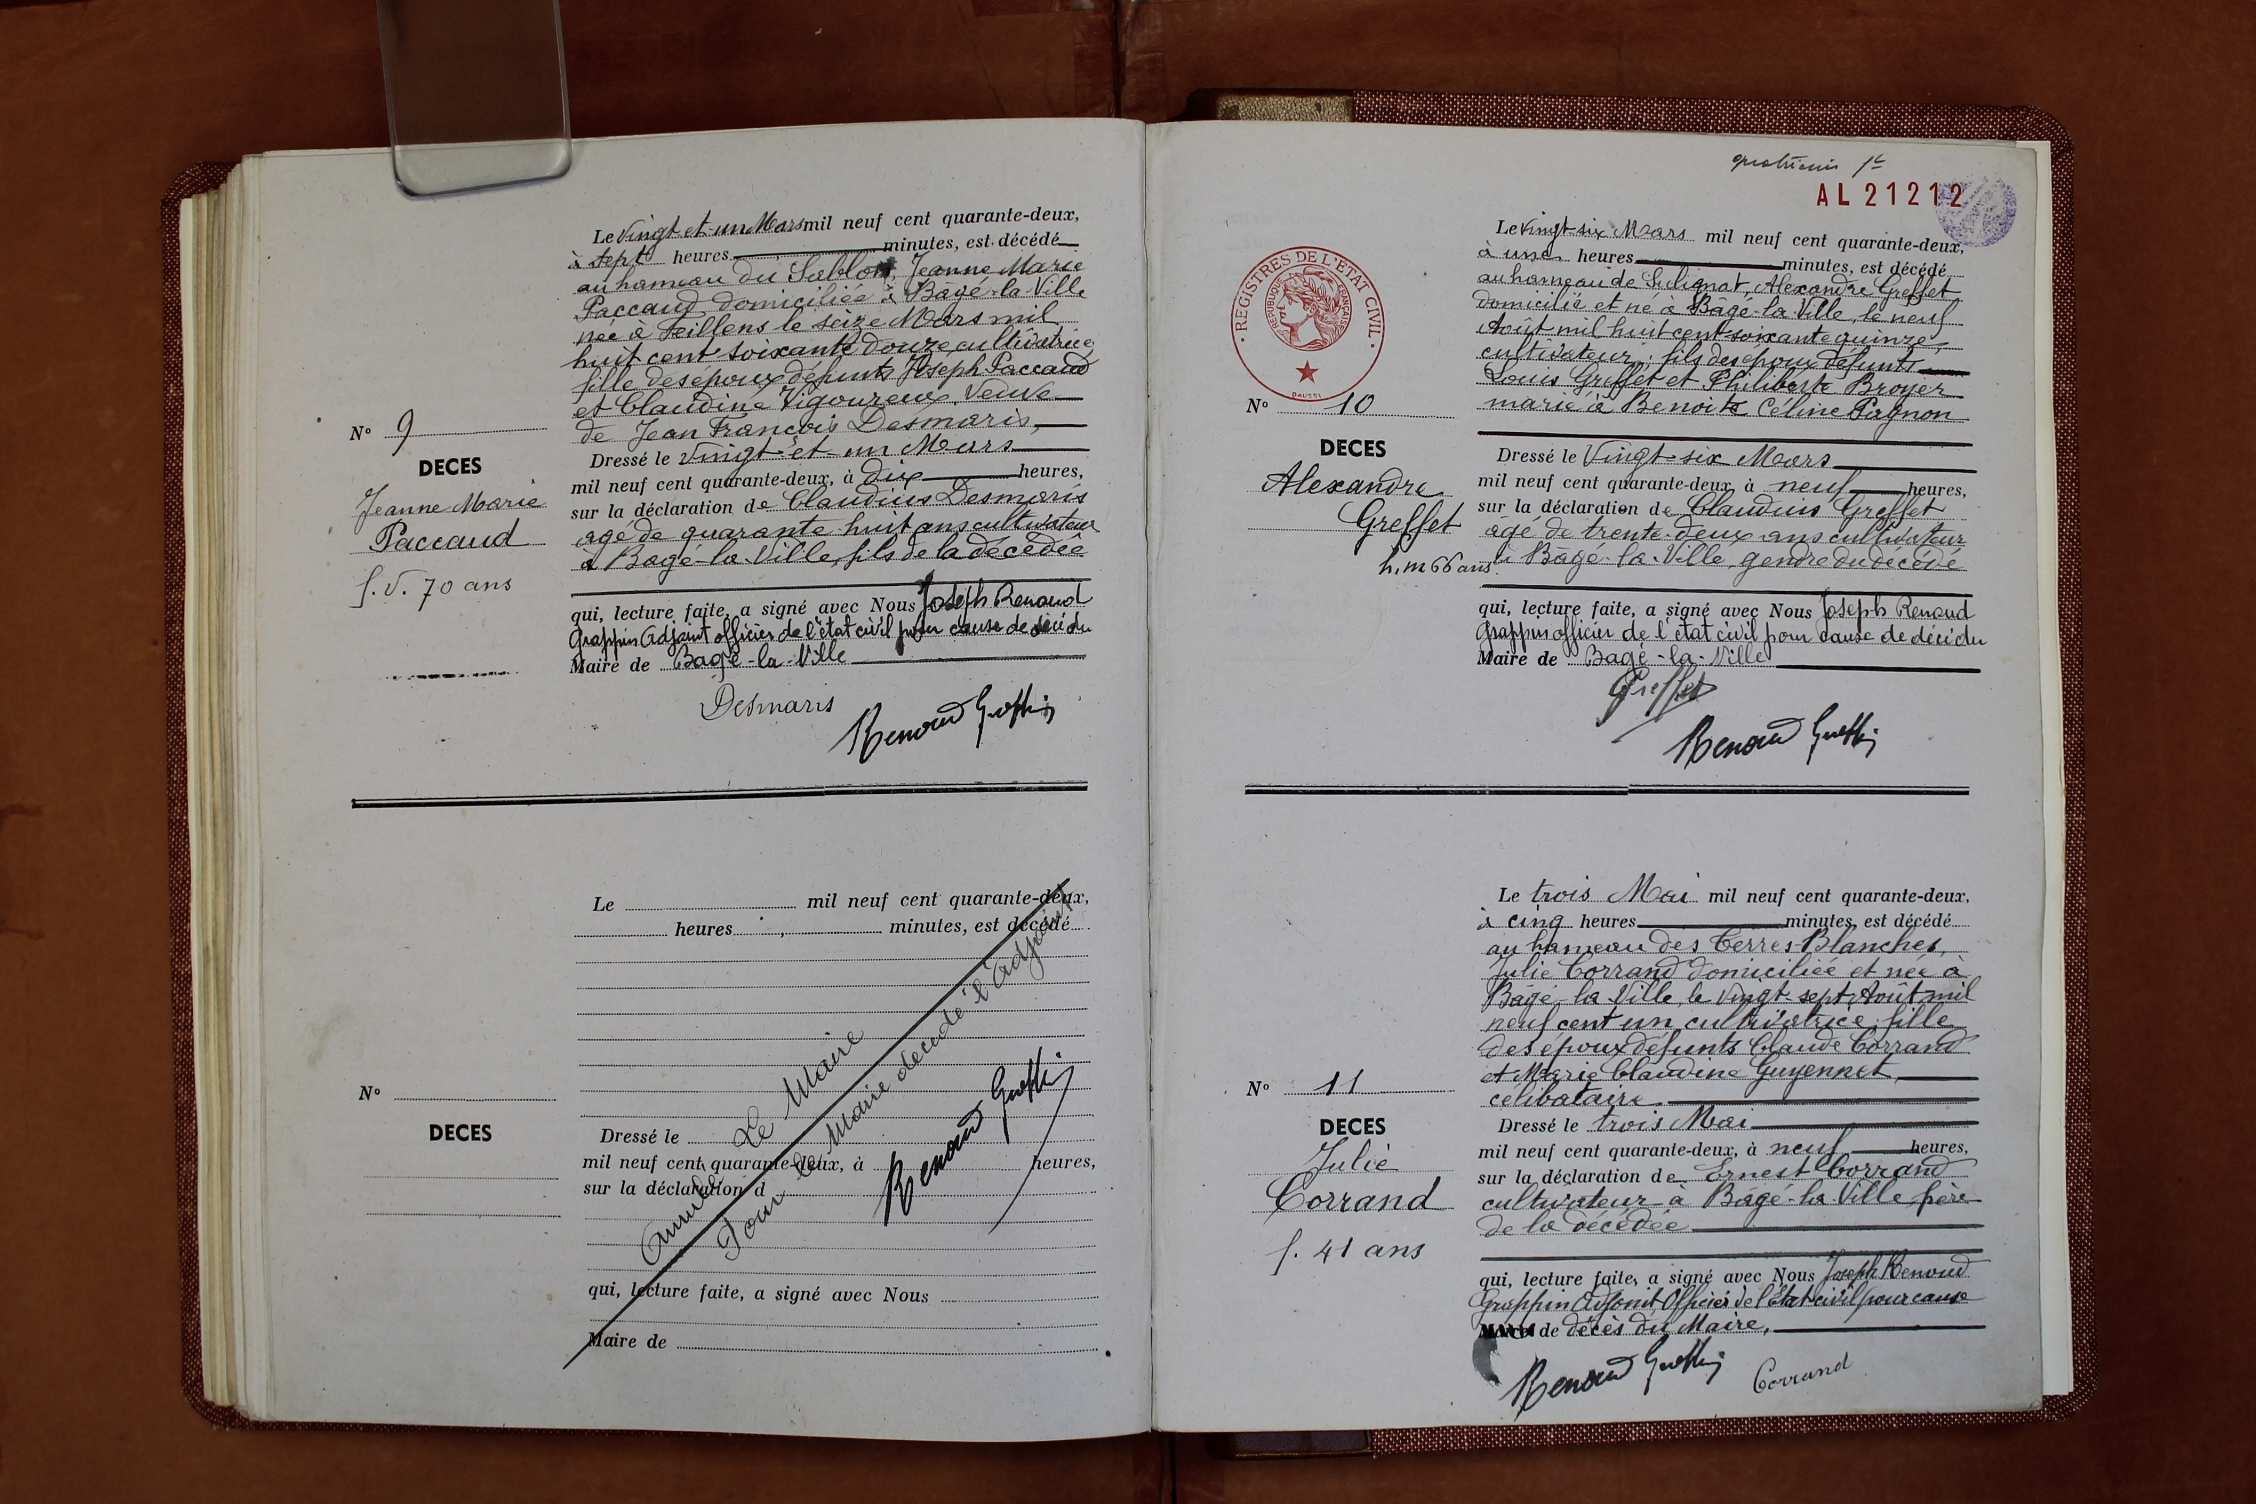 Le vingt et un Mars mil neuf cent quarante-deux,
à sept heures minutes, est décédé
au hameau du Sablon, Jeanne Marie
Paccaud domiciliée à Bâgé-la-Ville
née à Feillens le seize Mars mil
huit cent soixante douze cultivatrice
fille des époux défunts Joseph Paccaud
et Claudine Vigoureux, Veuve
de Jean François Desmaris,
N° 9
DECES
Jeanne Marie
Paccaud
f. v. 70 ans
Dressé le vingt et un Mars
mil neuf cent quarante-deux, à dix heures,
sur la déclaration de Claudius Desmaris
agé de quarante huit ans cultivateur
à Bagé-la-Ville, fils de la décédée
qui, lecture faite, a signé avec Nous Joseph Renoud
Grappin Adjoint officier de l'état civil pour cause de décès du
Maire de Bagé-la-Ville
Desmaris
Renoud Grappin
Le mil neuf cent quarante-deux,
heures, minutes, est décédé
N°
DECES
Dressé le
mil neuf cent quarante-deux, à heures,
sur la déclaration d
qui, lecture faite, a signé avec Nous
Maire de
Annulé Le Maire
Pour le Maire décédé l'Adjoint
Renoud Grappin
AL 21212
REGISTRES DE L'ETAT CIVIL
REPUBLIQUE FRANÇAISE
DAUSSI
Le vingt-six Mars mil neuf cent quarante-deux,
à une heures minutes, est décédé
au hameau de Sulignat, Alexandre Greffet
domicilié et né à Bâgé-la-Ville, le neuf
Août mil huit cent soixante quinze,
cultivateur, fils des époux défunts
Louis Greffet et Philiberte Broyer
marié à Benoite Céline Pagnon
N° 10
DECES
Alexandre
Greffet
h. m 66 ans
Dressé le vingt-six Mars
mil neuf cent quarante-deux, à neuf heures,
sur la déclaration de Claudius Greffet
agé de trente-deux ans cultivateur
à Bâgé-la-Ville, gendre du décédé
qui, lecture faite, a signé avec Nous Joseph Renoud
Grappin officier de l'état civil pour cause de décès du
Maire de Bagé-la-Ville
Greffet
Renoud Grappin
Le trois Mai mil neuf cent quarante-deux,
à cinq heures minutes, est décédé
au hameau des Terres-Blanches,
Julie Corrand domiciliée et née à
Bâgé-la-Ville, le vingt-sept Août mil
neuf cent un, cultivatrice, fille
des époux défunts Claude Corrand
et Marie Claudine Guyennet,
célibataire.
N° 11
DECES
Julie
Corrand
f. 41 ans
Dressé le trois Mai
mil neuf cent quarante-deux, à neuf heures,
sur la déclaration de Ernest Corrand
cultivateur à Bâgé-la-Ville, frère
de la décédée
qui, lecture faite, a signé avec Nous Joseph Renoud
Grappin Adjoint Officier de l'état civil pour cause
de décès du Maire,
Renoud Grappin
Corrand